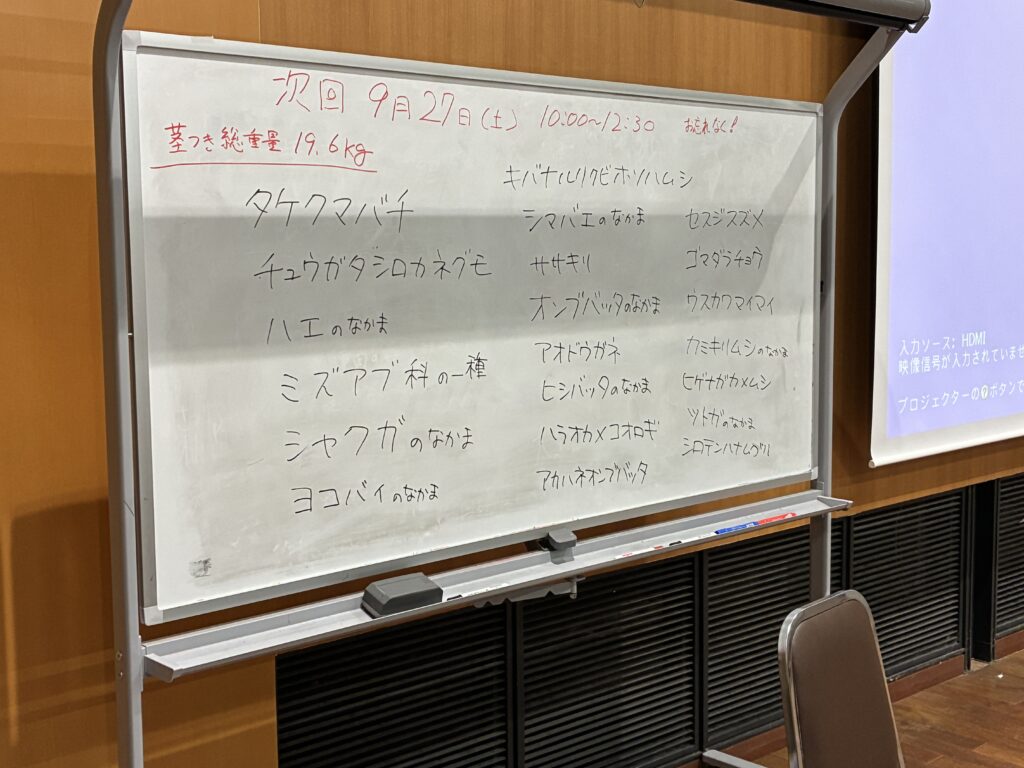 次回 9月27日(土) 10:00~12:30 お忘れなく!
茎つき総重量 19.6kg
タケクマバチ
チュウガタシロカネグモ
ハエのなかま
ミズアブ科の一種
シャクガのなかま
ヨコバイのなかま
キバナルリクビホソハムシ
シマバエのなかま
ササキリ
オンブバッタのなかま
アオドウガネ
ヒシバッタのなかま
ハラオカメコオロギ
アカハネオンブバッタ
セスジスズメ
ゴマダラチョウ
ウスカワマイマイ
カミキリムシのなかま
ヒゲナガカメムシ
ツトガのなかま
シロテンハナムグリ
入力ソース: HDMI
映像信号が入力されていませ
プロジェクターの?ボタンで